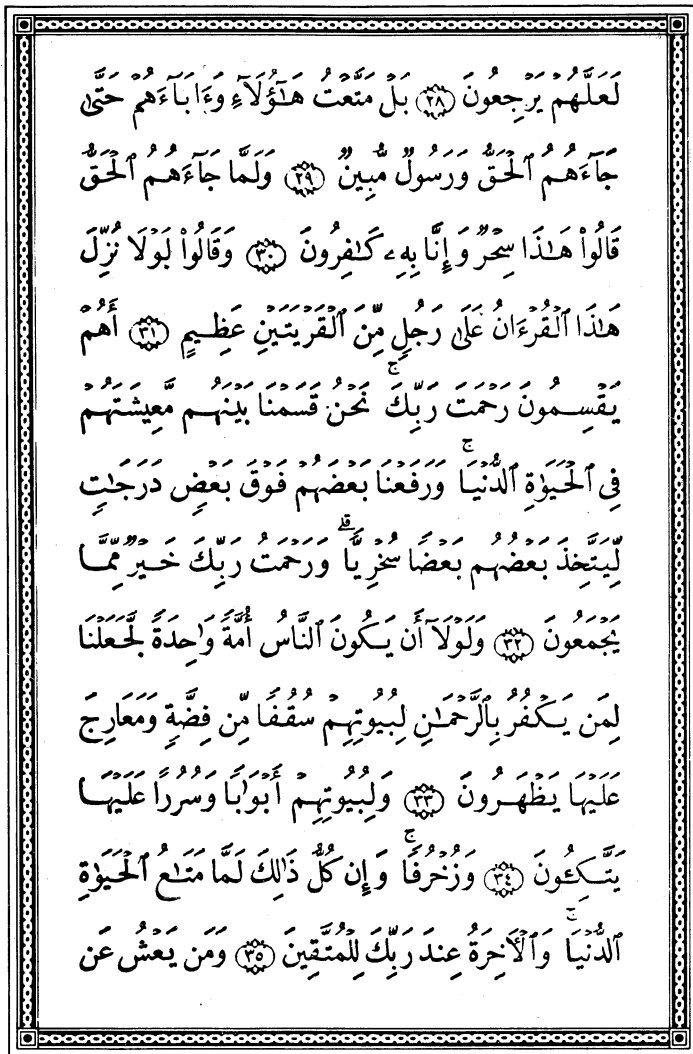 لَعَلَّهُمْ يَرْجِعُونَ ﴿٢٨﴾ بَلْ مَتَّعْتُ هَـٰٓؤُلَآءِ وَءَابَآءَهُمْ حَتَّىٰ
جَآءَهُمُ ٱلْحَقُّ وَرَسُولٌ مُّبِينٌ ﴿٢٩﴾ وَلَمَّا جَآءَهُمُ ٱلْحَقُّ
قَالُوا۟ هَـٰذَا سِحْرٌ وَإِنَّا بِهِۦ كَـٰفِرُونَ ﴿٣٠﴾ وَقَالُوا۟ لَوْلَا نُزِّلَ
هَـٰذَا ٱلْقُرْءَانُ عَلَىٰ رَجُلٍ مِّنَ ٱلْقَرْيَتَيْنِ عَظِيمٍ ﴿٣١﴾ أَهُمْ
يَقْسِمُونَ رَحْمَتَ رَبِّكَ ۚ نَحْنُ قَسَمْنَا بَيْنَهُم مَّعِيشَتَهُمْ
فِى ٱلْحَيَوٰةِ ٱلدُّنْيَا ۚ وَرَفَعْنَا بَعْضَهُمْ فَوْقَ بَعْضٍ دَرَجَـٰتٍ
لِّيَتَّخِذَ بَعْضُهُم بَعْضًا سُخْرِيًّا ۗ وَرَحْمَتُ رَبِّكَ خَيْرٌ مِّمَّا
يَجْمَعُونَ ﴿٣٢﴾ وَلَوْلَآ أَن يَكُونَ ٱلنَّاسُ أُمَّةً وَٰحِدَةً لَّجَعَلْنَا
لِمَن يَكْفُرُ بِٱلرَّحْمَـٰنِ لِبُيُوتِهِمْ سُقُفًا مِّن فِضَّةٍ وَمَعَارِجَ
عَلَيْهَا يَظْهَرُونَ ﴿٣٣﴾ وَلِبُيُوتِهِمْ أَبْوَٰبًا وَسُرُرًا عَلَيْهَا
يَتَّكِـُٔونَ ﴿٣٤﴾ وَزُخْرُفًا ۚ وَإِن كُلُّ ذَٰلِكَ لَمَّا مَتَـٰعُ ٱلْحَيَوٰةِ
ٱلدُّنْيَا ۚ وَٱلْـَٔاخِرَةُ عِندَ رَبِّكَ لِلْمُتَّقِينَ ﴿٣٥﴾ وَمَن يَعْشُ عَن